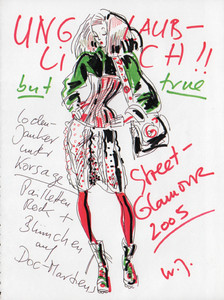 UNGLAUB-
LICH!!
but true
Loden-
Janker
unter
Korsage
Pailletten
Rock +
Blümchen
auf
Doc-Martens!
Street-
Glamour
2005
W.J.